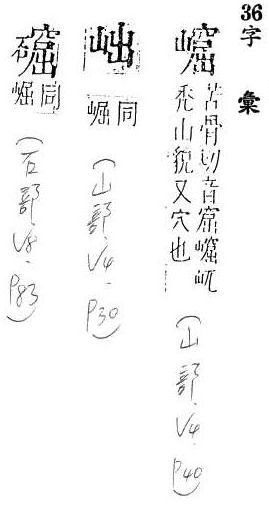 36 字彙
苦骨切音窟 屼
禿山貌又穴也
(山部.V4.P40)
同崛
(山部.V4.P30)
同崛
(石部.V8.P83)